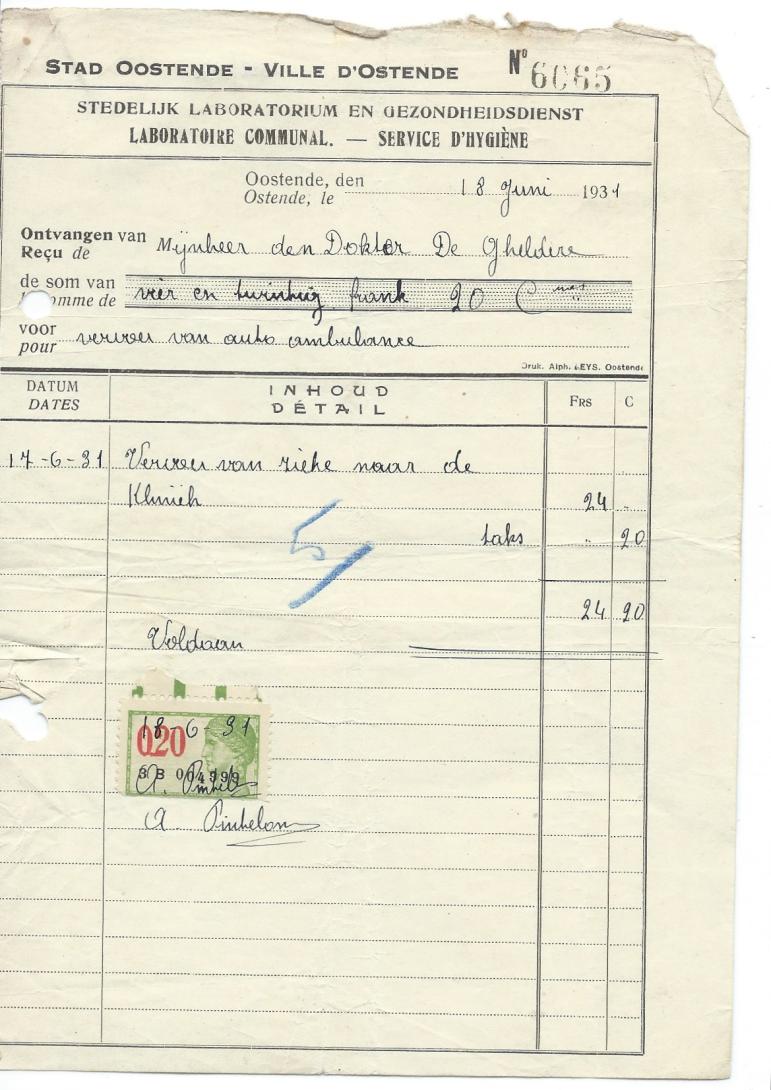 STAD OOSTENDE - VILLE D'OSTENDE
N° 6065
STEDELIJK LABORATORIUM EN GEZONDHEIDSDIENST
LABORATOIRE COMMUNAL. — SERVICE D'HYGIÈNE
Oostende, den
Ostende, le 18 Juni 1931
Ontvangen van
Reçu de Mijnheer den Dokter De Gheldere
de som van
somme de vier en twintig frank 20 C
voor
pour vervoer van auto ambulance
Druk. Alph. LEYS. Oostende
DATUM INHOUD FRS C
DATES DÉTAIL
17-6-31 Vervoer van zieke naar de
Kliniek 24 "
taks " 20
5
24 20
Voldaan
18-6-31
0.20
3B 004599
A.
A.